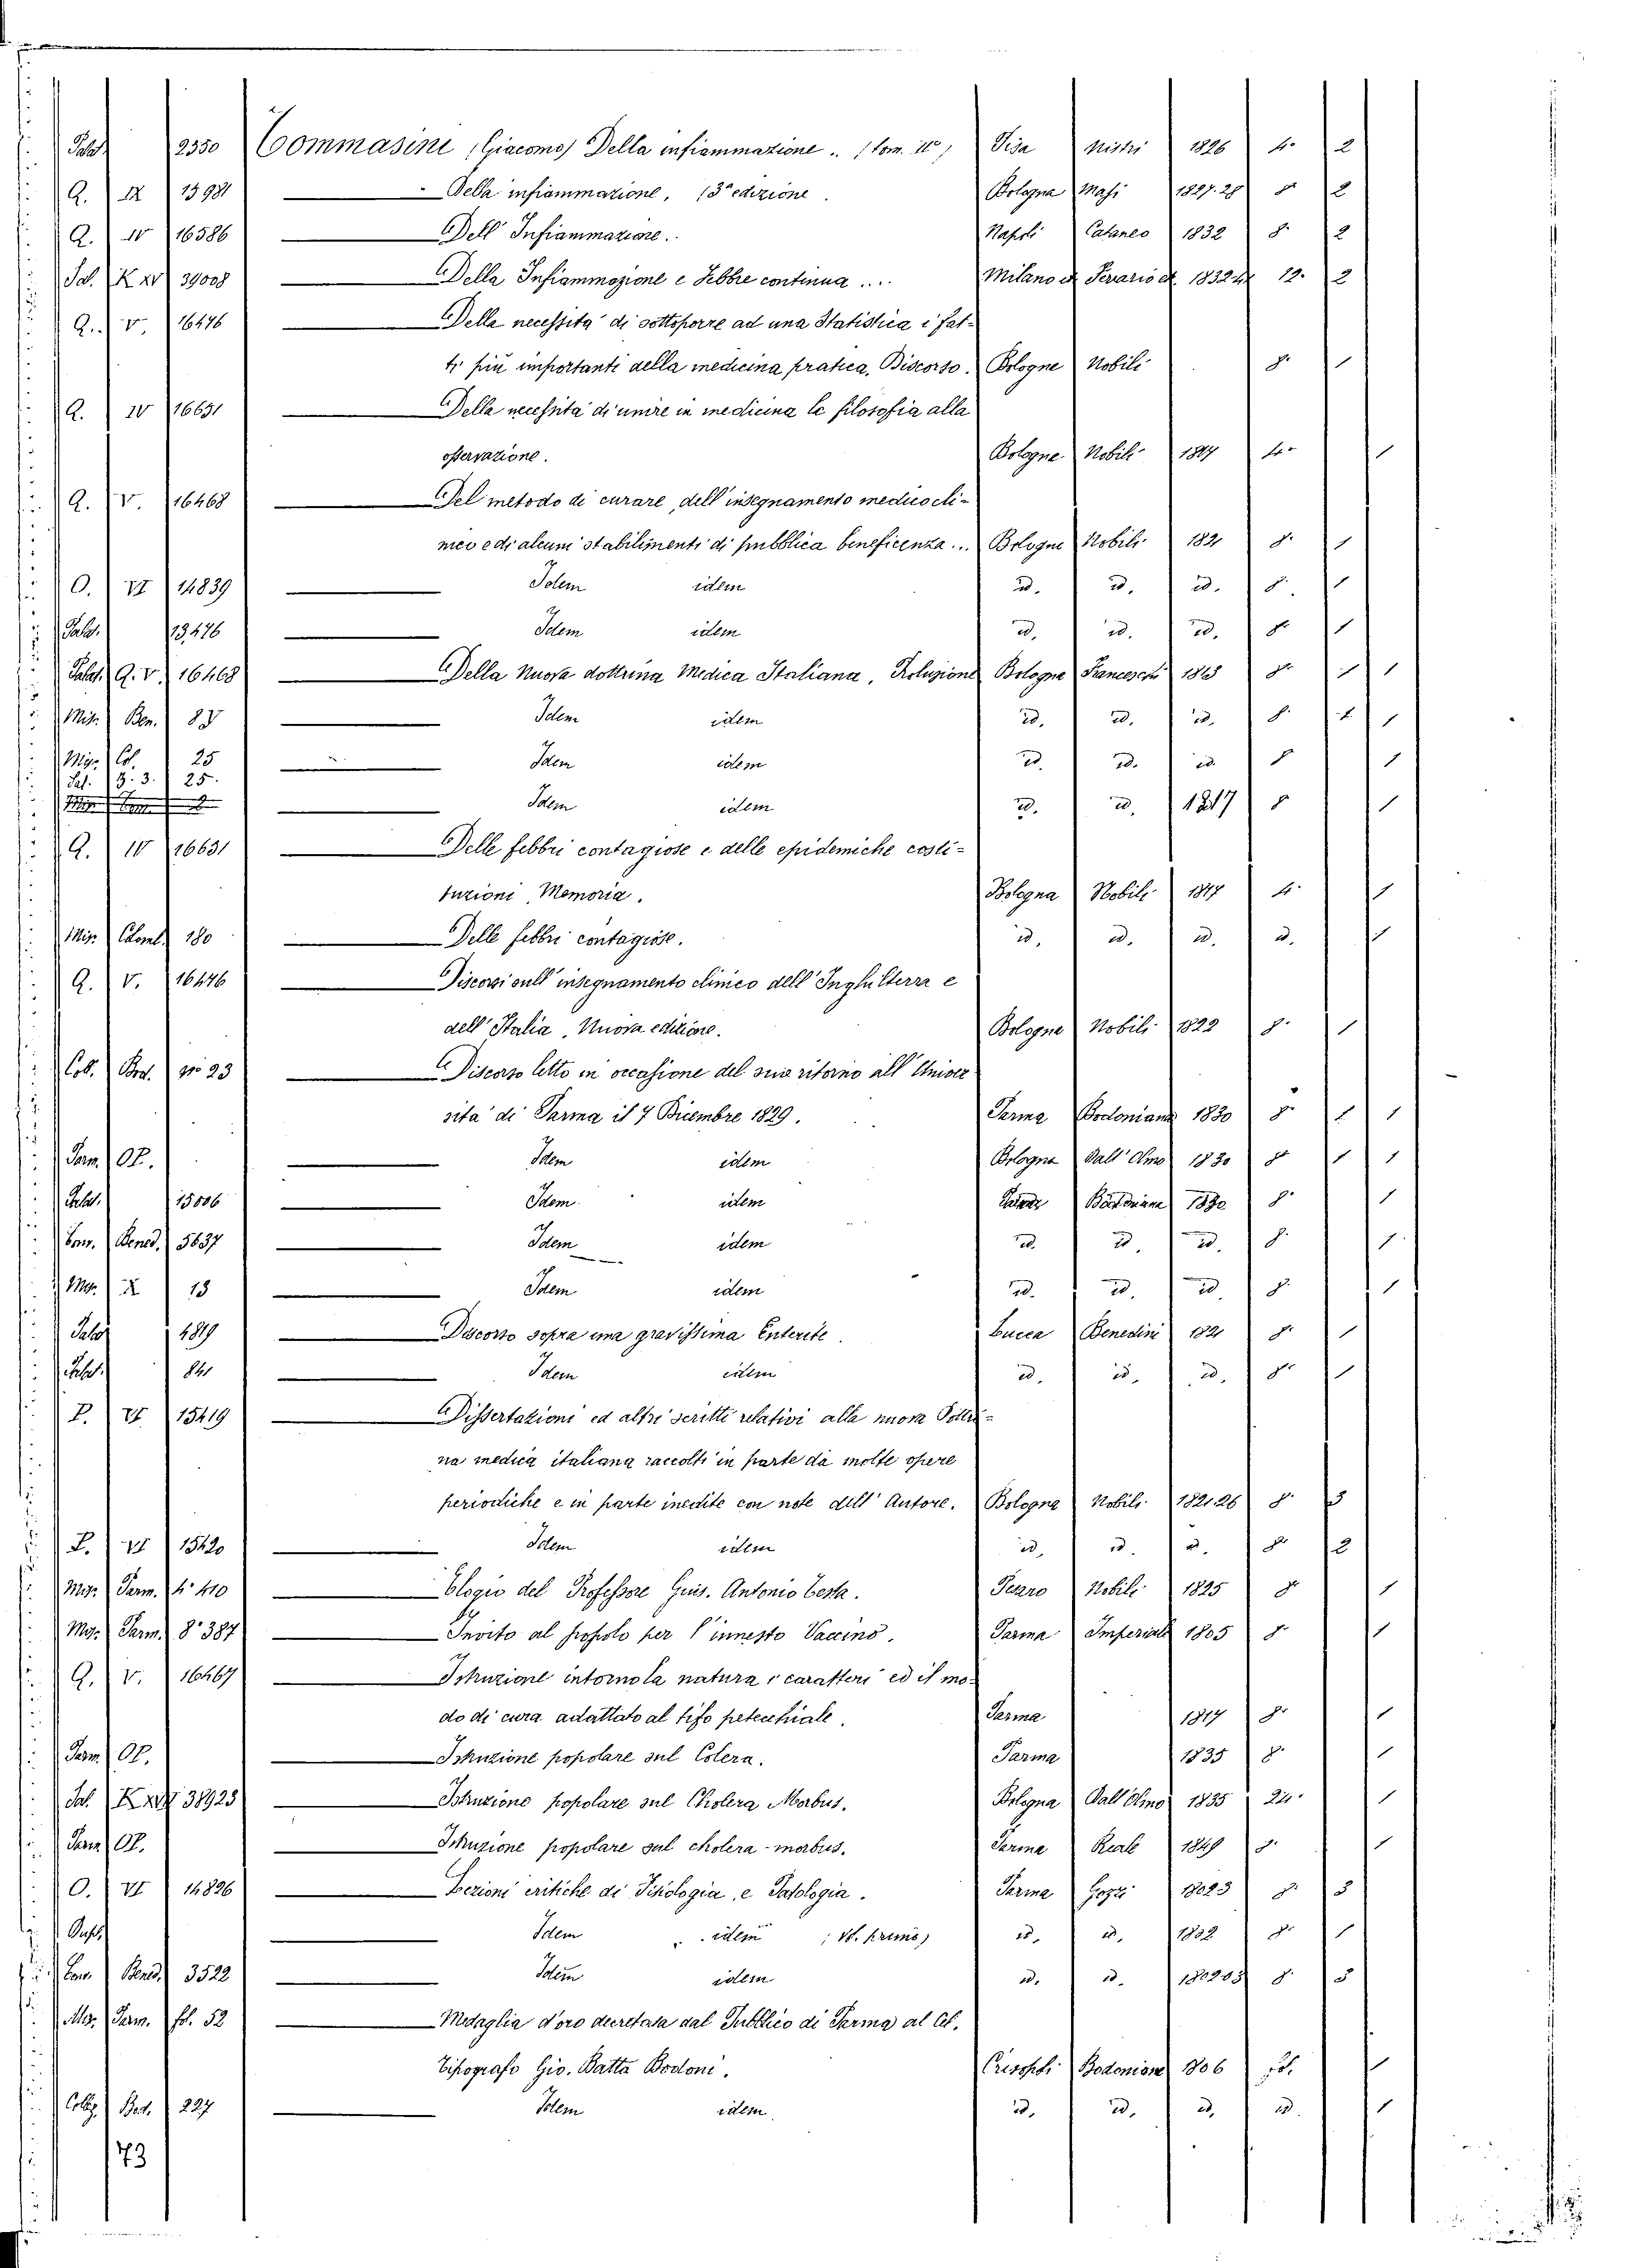 Palat. 2350 Tommasini (Giacomo) Della infiammazione .. (tom. 1º) Pisa Nistri 1826 4º 2
Q. IX 13981 — Della infiammazione, (3ª edizione. Bologna Masi 1827.28 8º 2
Q. IV 16586 — Dell' Infiammazione.. Napoli Cataneo 1832 8º 2
Sal. K XV 39008 — Della Infiammazione e Febbre continua .... Milano 12º 2
Q. V. 16476 — Della necessità di sottoporre ad una Statistica i fat-
ti più importanti della medicina pratica, Discorso. Bologna Nobili 8º 1
Q. IV 16631 — Della necessità di unire in medicina la filosofia alla
osservazione. Bologna Nobili 1817 4º 1
Q. V. 16468 — Del metodo di curare, dell' insegnamento medico cli-
nico e di alcuni stabilimenti di pubblica beneficenza ... Bologna Nobili 1821 8º 1
O. VI 14839 — Idem idem id. id. id. 8. 1
Palat. 13476 — Idem idem id. id. id. 8º 1
Palat. Q. V. 16468 — Della Nuova dottrina Medica Italiana, Prolusione Bologna Franceschi 8º 1 1
Mis. Ben. — Idem idem id. id. id. 8º 1 1
Mis. Col. 25 — Idem idem id. id. id. 8 1
Sal. 3. 25.
— Idem idem id. id. 1817 8 1
Q. IV 16631 — Delle febbri contagiose e delle epidemiche costi-
tuzioni, Memoria. Bologna Nobili 1817 4º 1
Mis. Colomb. 180 — Delle febbri contagiose. id. id. id. id. 1
Q. V. 16476 — Discorsi sull' insegnamento clinico dell' Inghilterra e
dell' Italia, Nuova edizione. Bologna Nobili 1822 8º 1
Coll. Bod. nº 23 — Discorso letto in occasione del suo ritorno all' Univer
sità di Parma il 7 Dicembre 1829. Parma Bodoniana 1830 8º 1 1
Parm. OP. — Idem idem Bologna Dall' Olmo 1830 8º 1 1
Palat. 15006 — Idem idem Parma Bodoniana 1830 8º 1
Bened. 5637 — Idem idem id. id. id. 8º 1
Mis. X 13 — Idem idem id. id. id. 8º 1
Palat. 4819 — Discorso sopra una gravissima Enterite. Lucca Benedini 1821 8º 1
Palat. 841 — Idem idem id. id. id. 8º 1
P. VI 15419 — Dissertazioni ed altri scritti relativi alla nuova Dottri-
na medica italiana raccolti in parte da molte opere
periodiche e in parte inedite con note dell' Autore. Bologna Nobili 182126 8º 3
P. VI 15420 — Idem idem id. id. id. 8º 2
Mis. Parm. 4º 410 — Elogio del Professore Gius. Antonio Testa. Pesaro Nobili 1825 8º 1
Mis. Parm. 8º 387 — Invito al popolo per l' innesto Vaccino. Parma Imperiale 1805 8º 1
Q. V. 16467 — Istruzione intorno la natura, i caratteri ed il mo-
do di cura adattato al tifo petecchiale. Parma 1817 8º 1
Parm. OP. — Istruzione popolare sul Colera. Parma 1835 8º 1
Sal. K XIV 38923 — Istruzione popolare sul Cholera Morbus. Bologna Dall' Olmo 1835 24º 1
Parm. OP. — Istruzione popolare sul cholera-morbus. Parma Reale 1849 8º 1
O. VI 14826 — Lezioni critiche di Fisiologia, e Patologia. Parma Gozzi 8º 3
— Idem idem (V. primo) id. id. 1802 8º 1
Bened. 3522 — Idem idem id. id. 8º 3
Mis. Parm. fol. 52 — Medaglia d'oro decretata dal Pubblico di Parma al Cel.
Tipografo Gio. Batta Bodoni. Crisopoli Bodoniana 1806 fol. 1
Collez. Bod. 227 — Idem idem id. id. id. id. 1
173